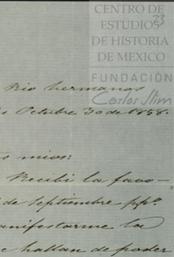 CENTRO DE
ESTUDIOS
DE HISTORIA
DE MEXICO
FUNDACIÓN
Carlos Slim
23
Rio hermanos
Octubre 30 de 1858.
mios:
Recibi la favo-
de Septiembre pp.º
anifestarme la
hallan de poder